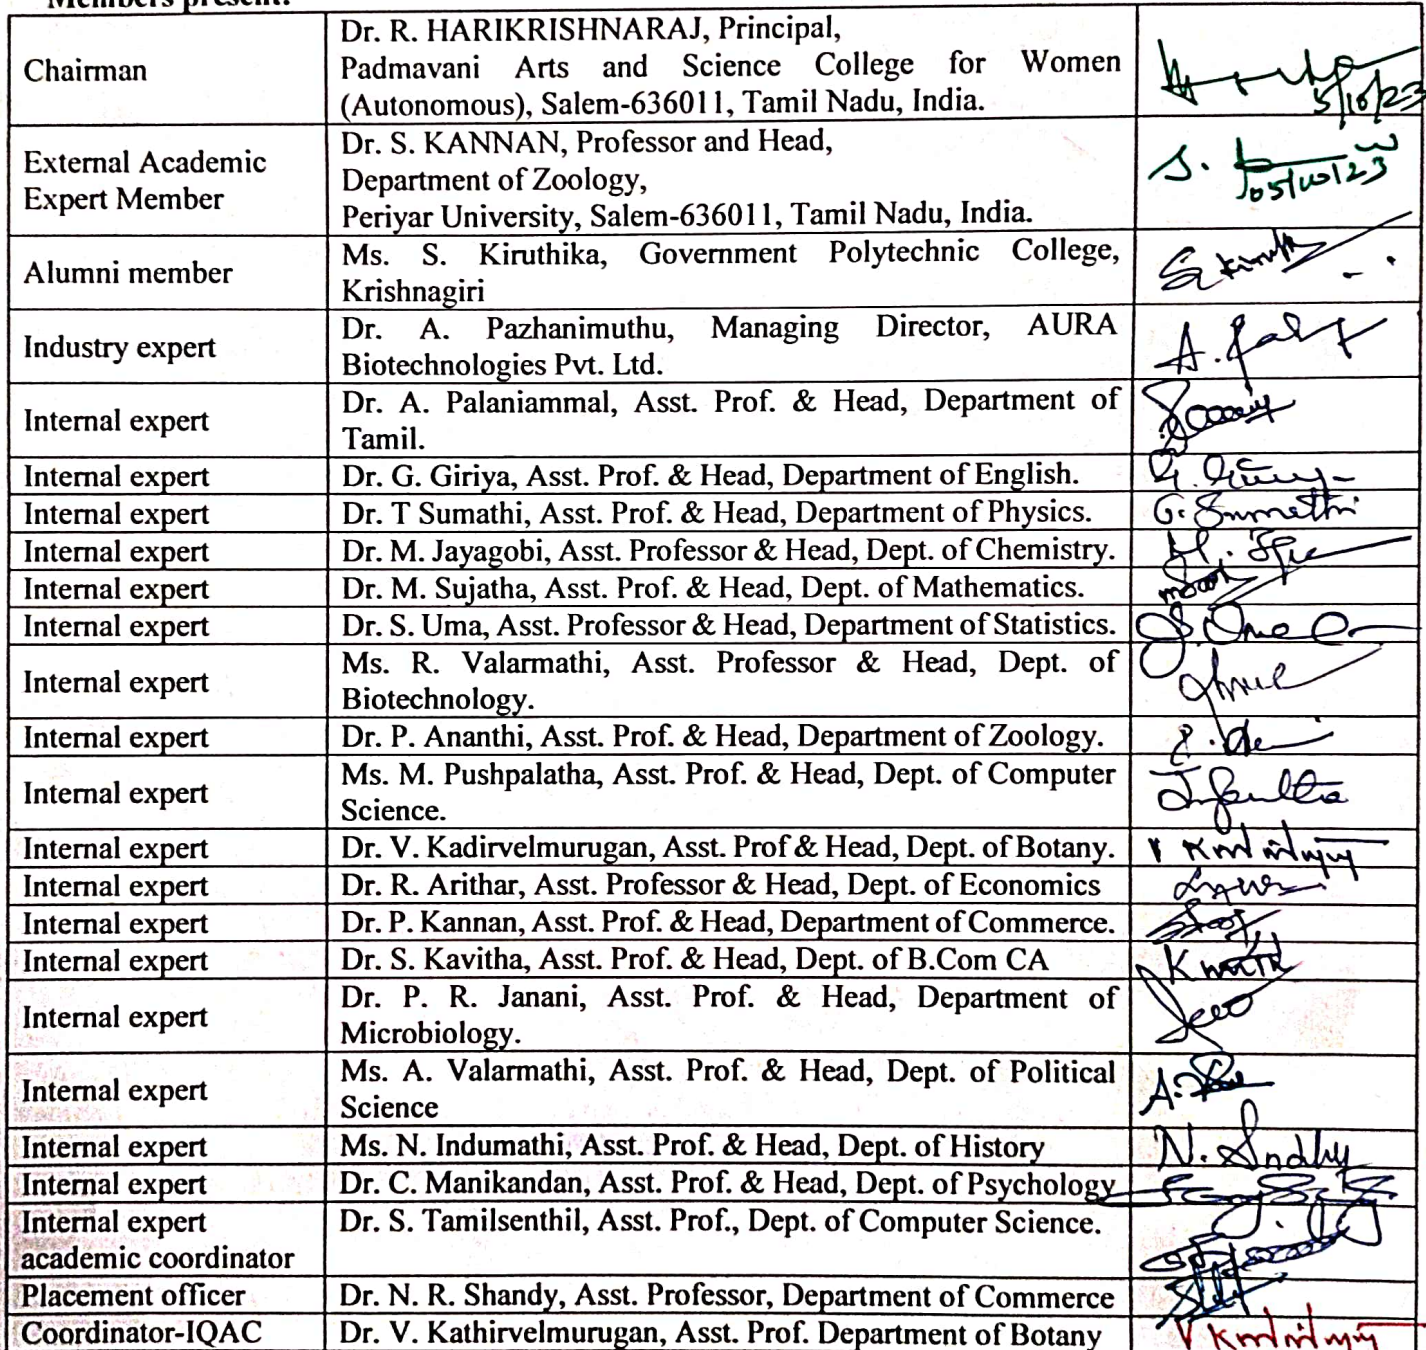 Members present:
Chairman
Dr. R. HARIKRISHNARAJ, Principal,
Padmavani Arts and Science College for Women
(Autonomous), Salem-636011, Tamil Nadu, India.
5/10/23
External Academic
Expert Member
Dr. S. KANNAN, Professor and Head,
Department of Zoology,
Periyar University, Salem-636011, Tamil Nadu, India.
S.
05/10/23
Alumni member
Ms. S. Kiruthika, Government Polytechnic College,
Krishnagiri
Industry expert
Dr. A. Pazhanimuthu, Managing Director, AURA
Biotechnologies Pvt. Ltd.
A.
Internal expert
Dr. A. Palaniammal, Asst. Prof. & Head, Department of
Tamil.
Internal expert
Dr. G. Giriya, Asst. Prof. & Head, Department of English.
Internal expert
Dr. T Sumathi, Asst. Prof. & Head, Department of Physics.
Internal expert
Dr. M. Jayagobi, Asst. Professor & Head, Dept. of Chemistry.
Internal expert
Dr. M. Sujatha, Asst. Prof. & Head, Dept. of Mathematics.
Internal expert
Dr. S. Uma, Asst. Professor & Head, Department of Statistics.
Internal expert
Ms. R. Valarmathi, Asst. Professor & Head, Dept. of
Biotechnology.
Internal expert
Dr. P. Ananthi, Asst. Prof. & Head, Department of Zoology.
Internal expert
Ms. M. Pushpalatha, Asst. Prof. & Head, Dept. of Computer
Science.
Internal expert
Dr. V. Kadirvelmurugan, Asst. Prof & Head, Dept. of Botany.
Internal expert
Dr. R. Arithar, Asst. Professor & Head, Dept. of Economics
Internal expert
Dr. P. Kannan, Asst. Prof. & Head, Department of Commerce.
Internal expert
Dr. S. Kavitha, Asst. Prof. & Head, Dept. of B.Com CA
Internal expert
Dr. P. R. Janani, Asst. Prof. & Head, Department of
Microbiology.
Internal expert
Ms. A. Valarmathi, Asst. Prof. & Head, Dept. of Political
Science
Internal expert
Ms. N. Indumathi, Asst. Prof. & Head, Dept. of History
N.
Internal expert
Dr. C. Manikandan, Asst. Prof. & Head, Dept. of Psychology
Internal expert
academic coordinator
Dr. S. Tamilsenthil, Asst. Prof., Dept. of Computer Science.
Placement officer
Dr. N. R. Shandy, Asst. Professor, Department of Commerce
Coordinator-IQAC
Dr. V. Kathirvelmurugan, Asst. Prof. Department of Botany